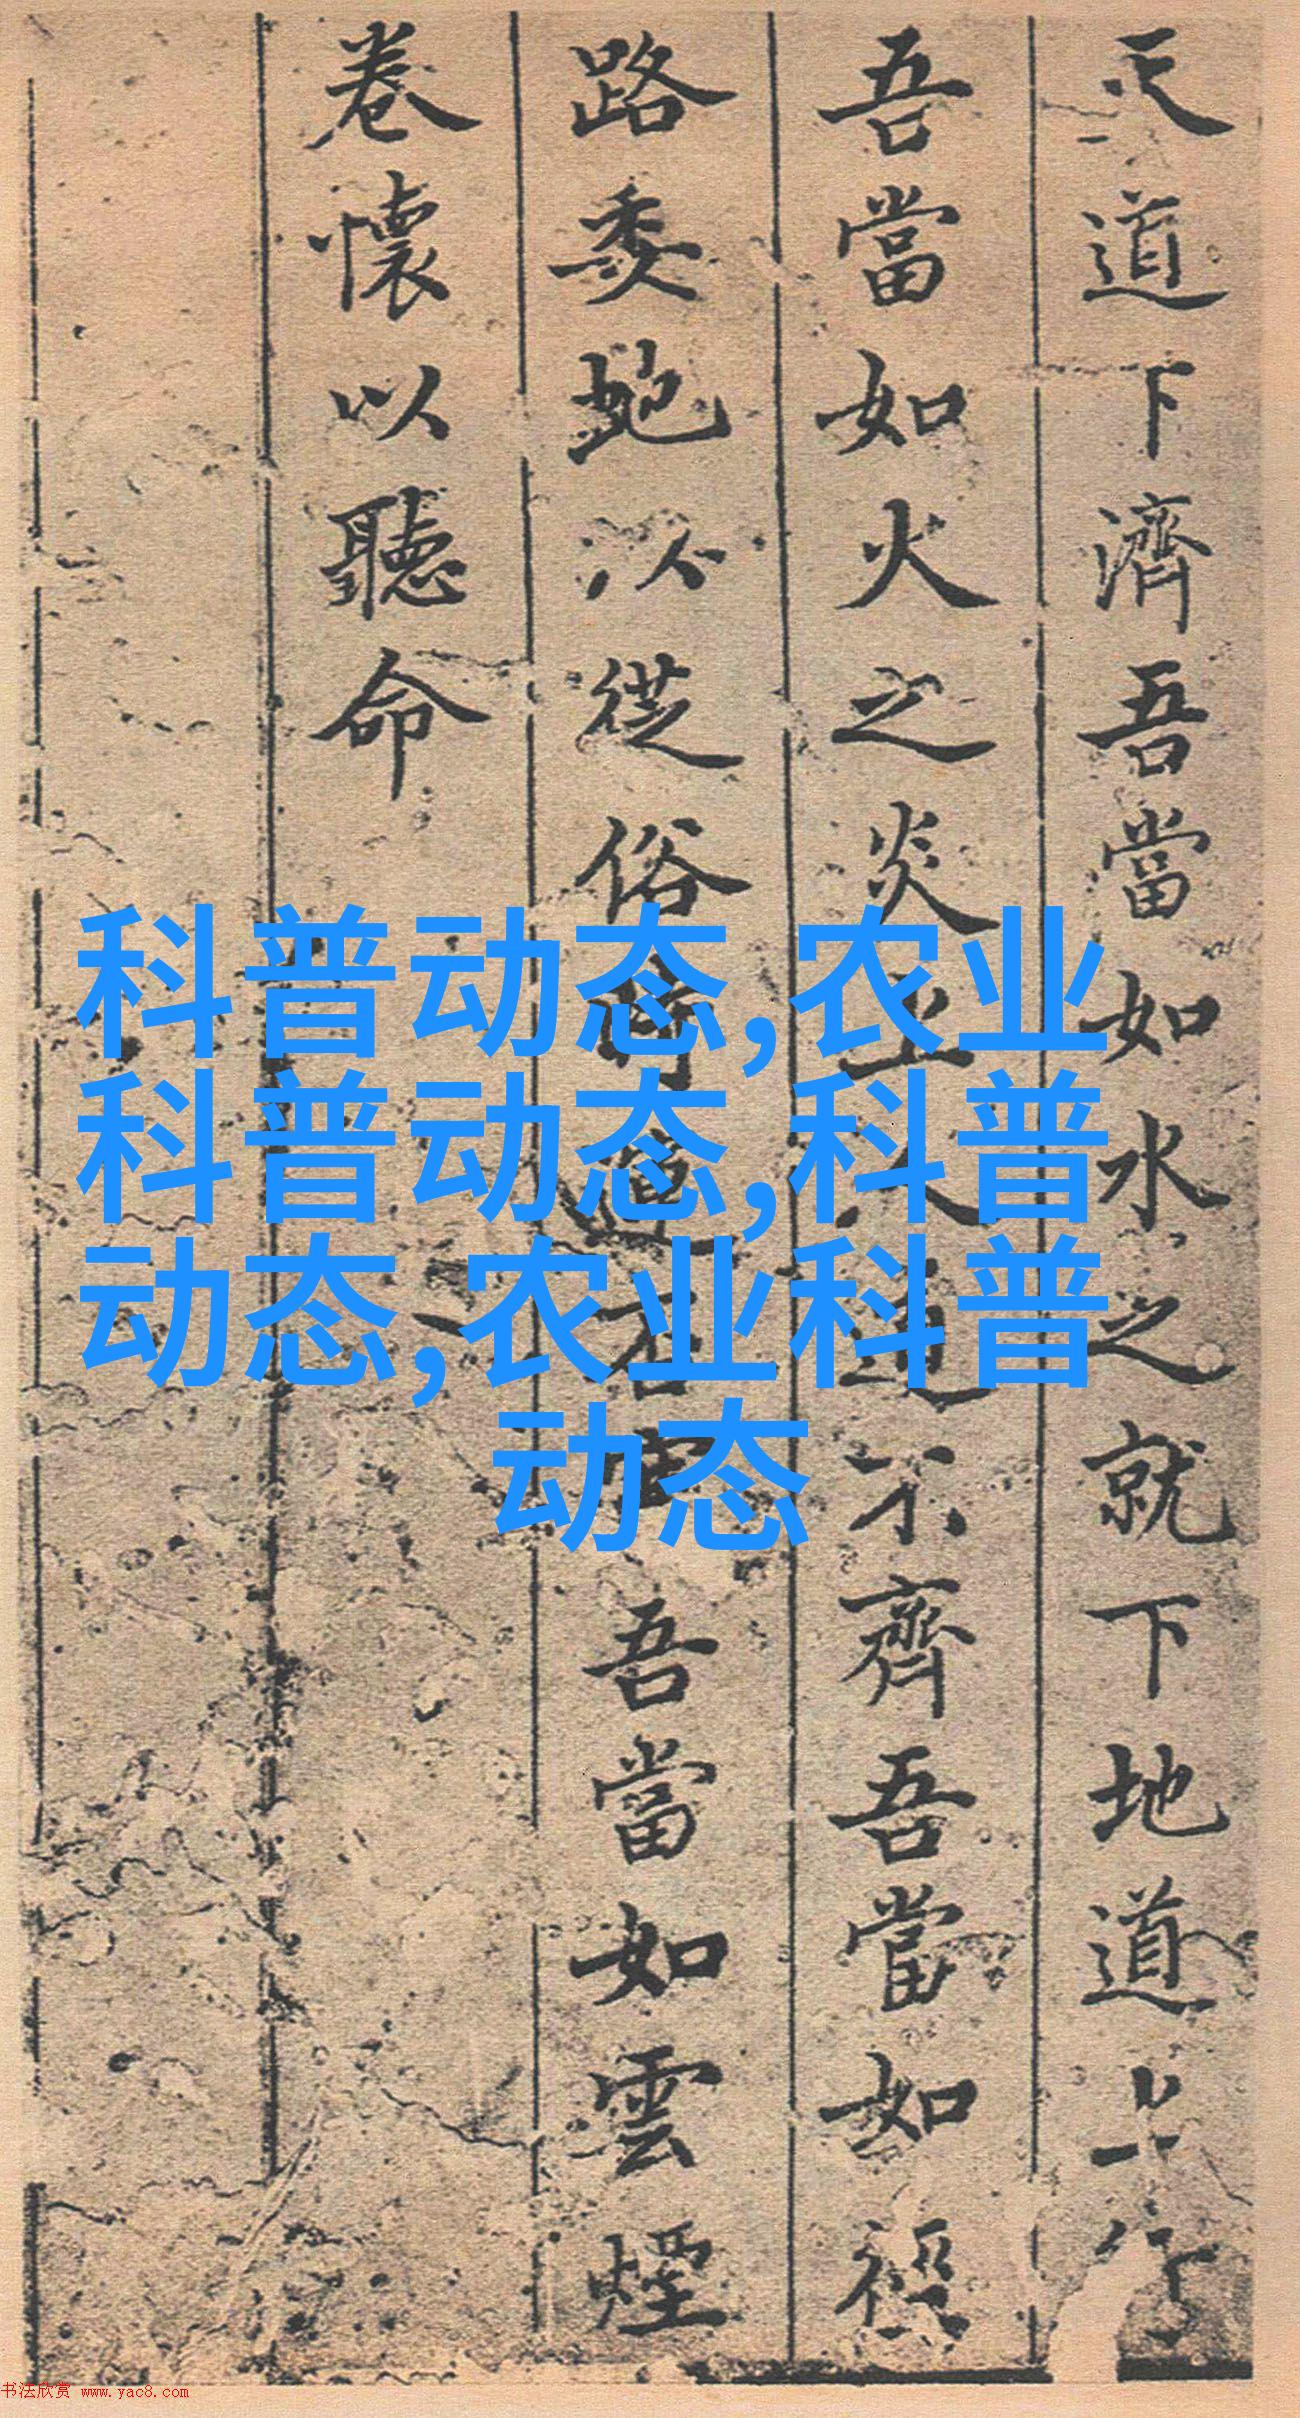 天道下濟吾當如水之就下地道上行
吾當如火之炎上人道不齊吾當如徑
路委虵以從俗道吾當如雲煙
卷懷以聽命
科普动态,农业
科普动态,科普
动态,农业科普
动态
书法欣赏 www.yac8.com